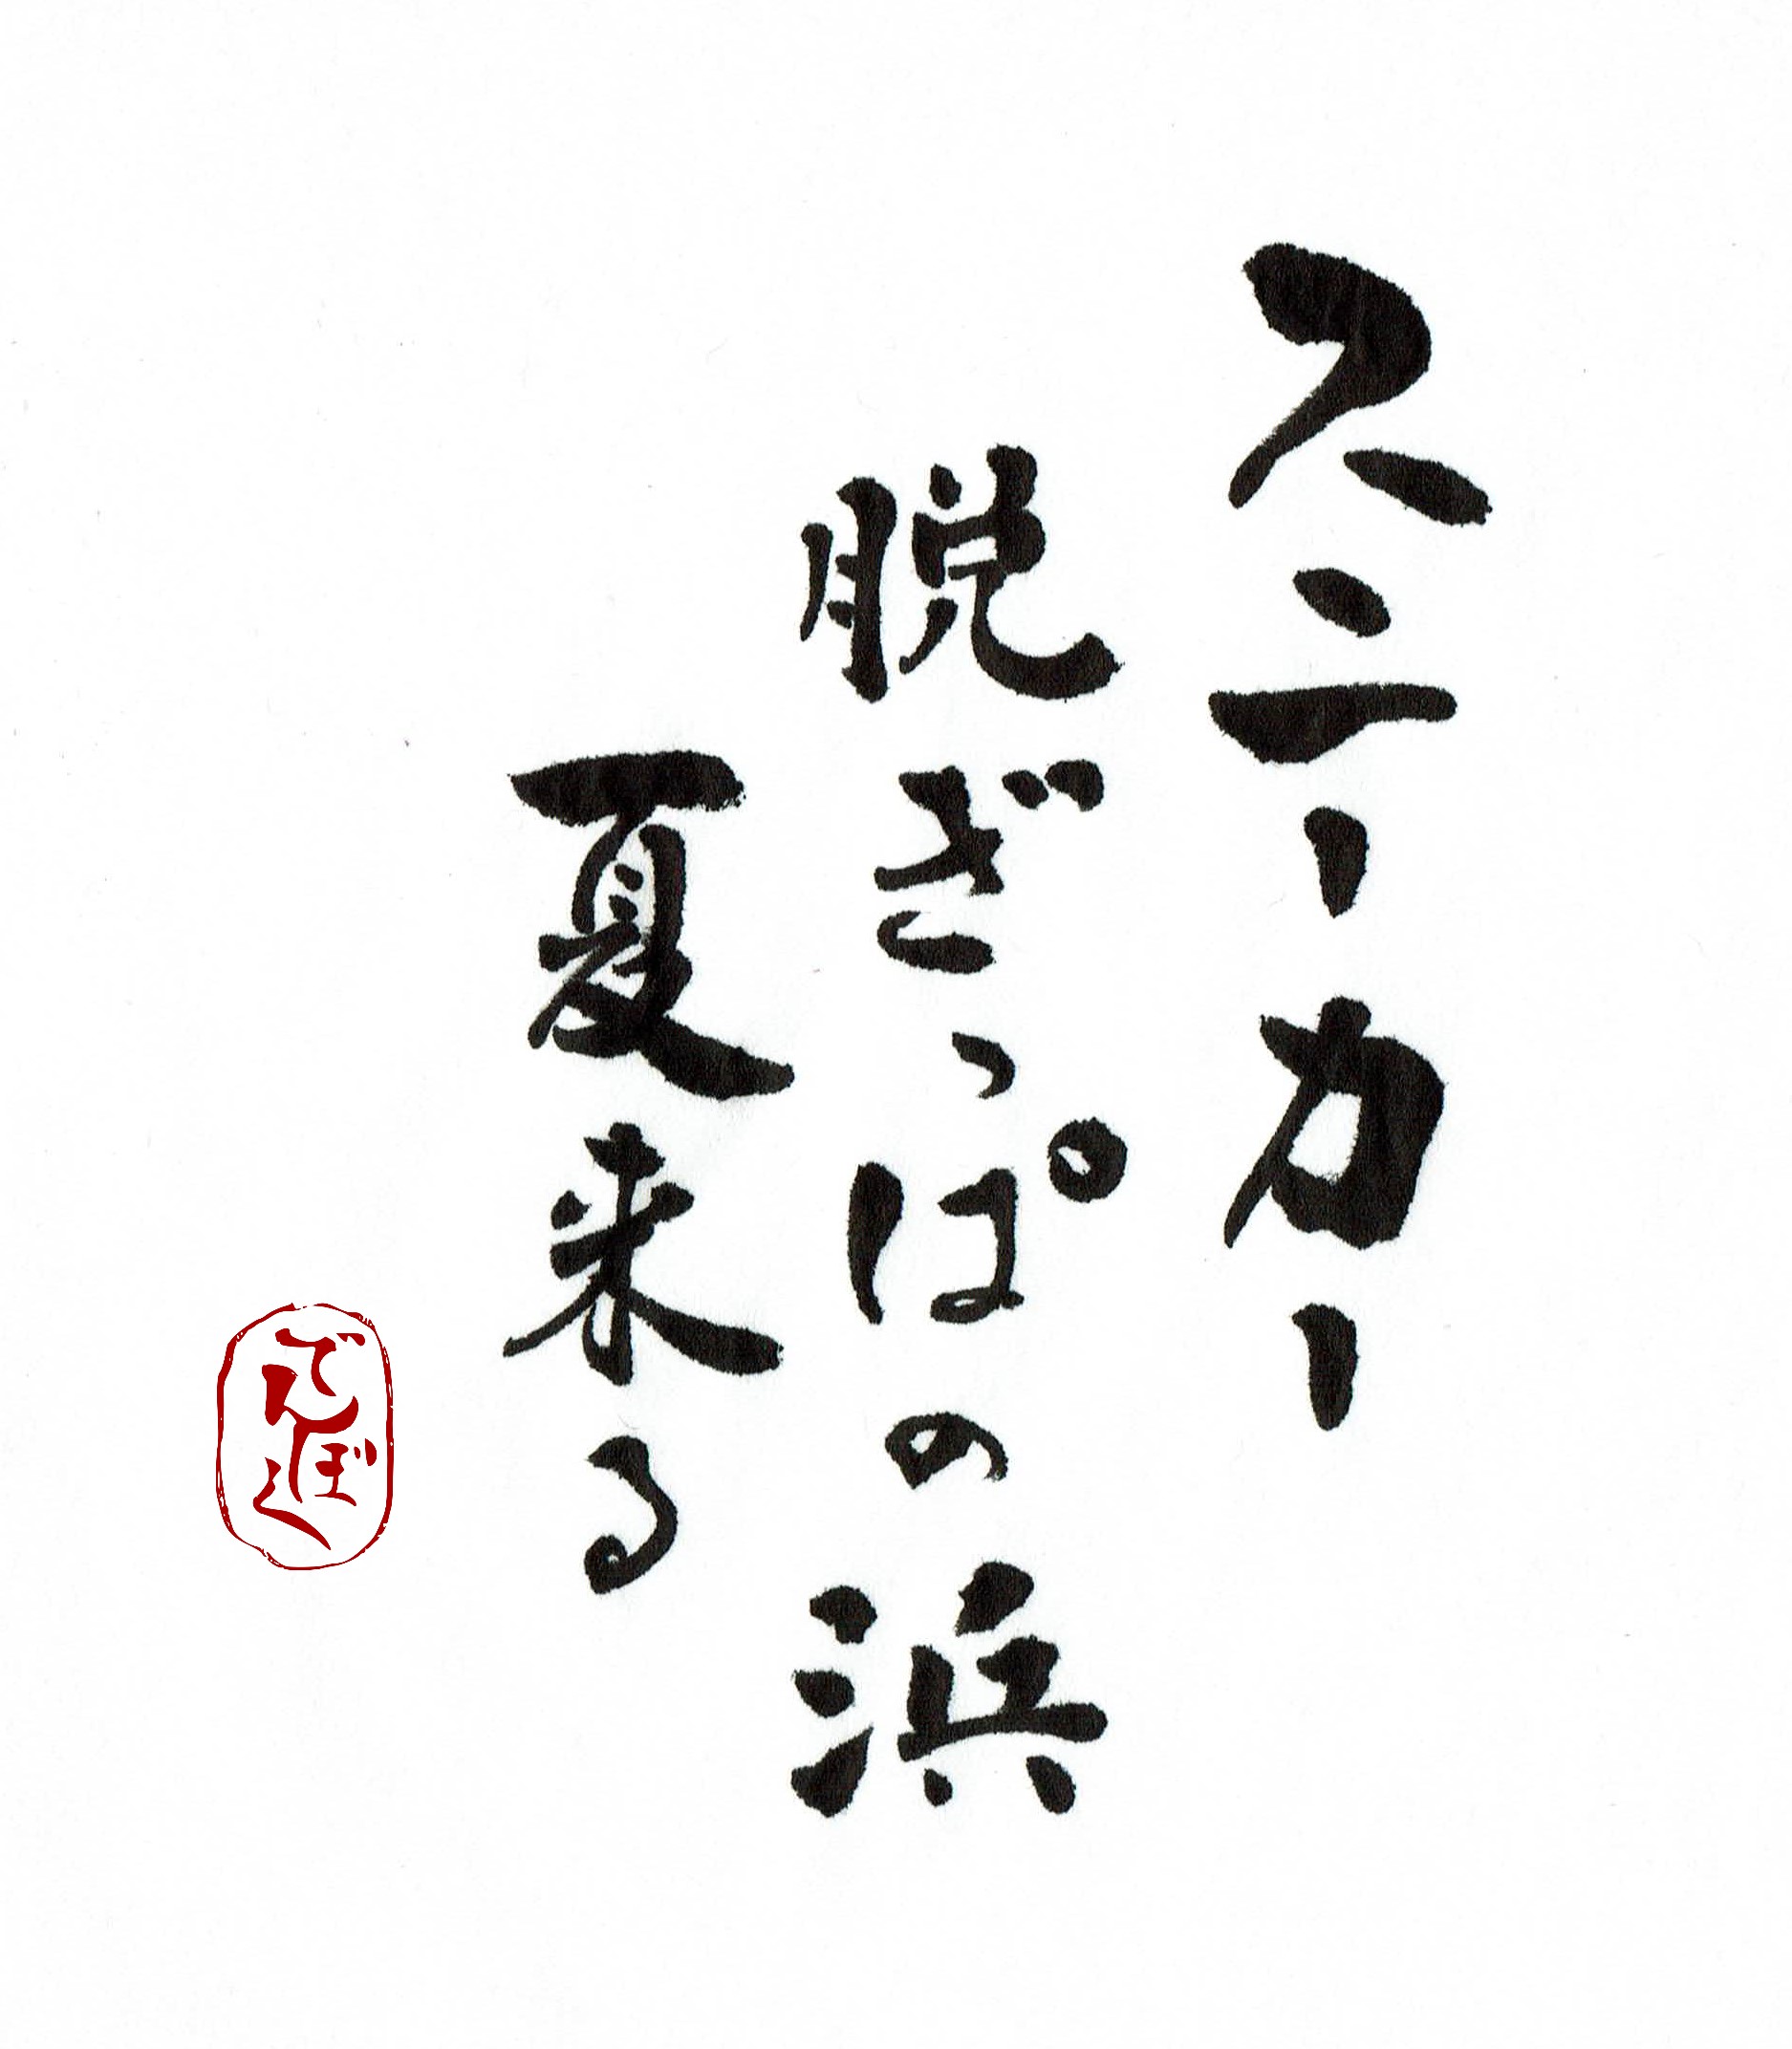 スニーカー
脱ぎっぱの浜
夏来る
でんぼく